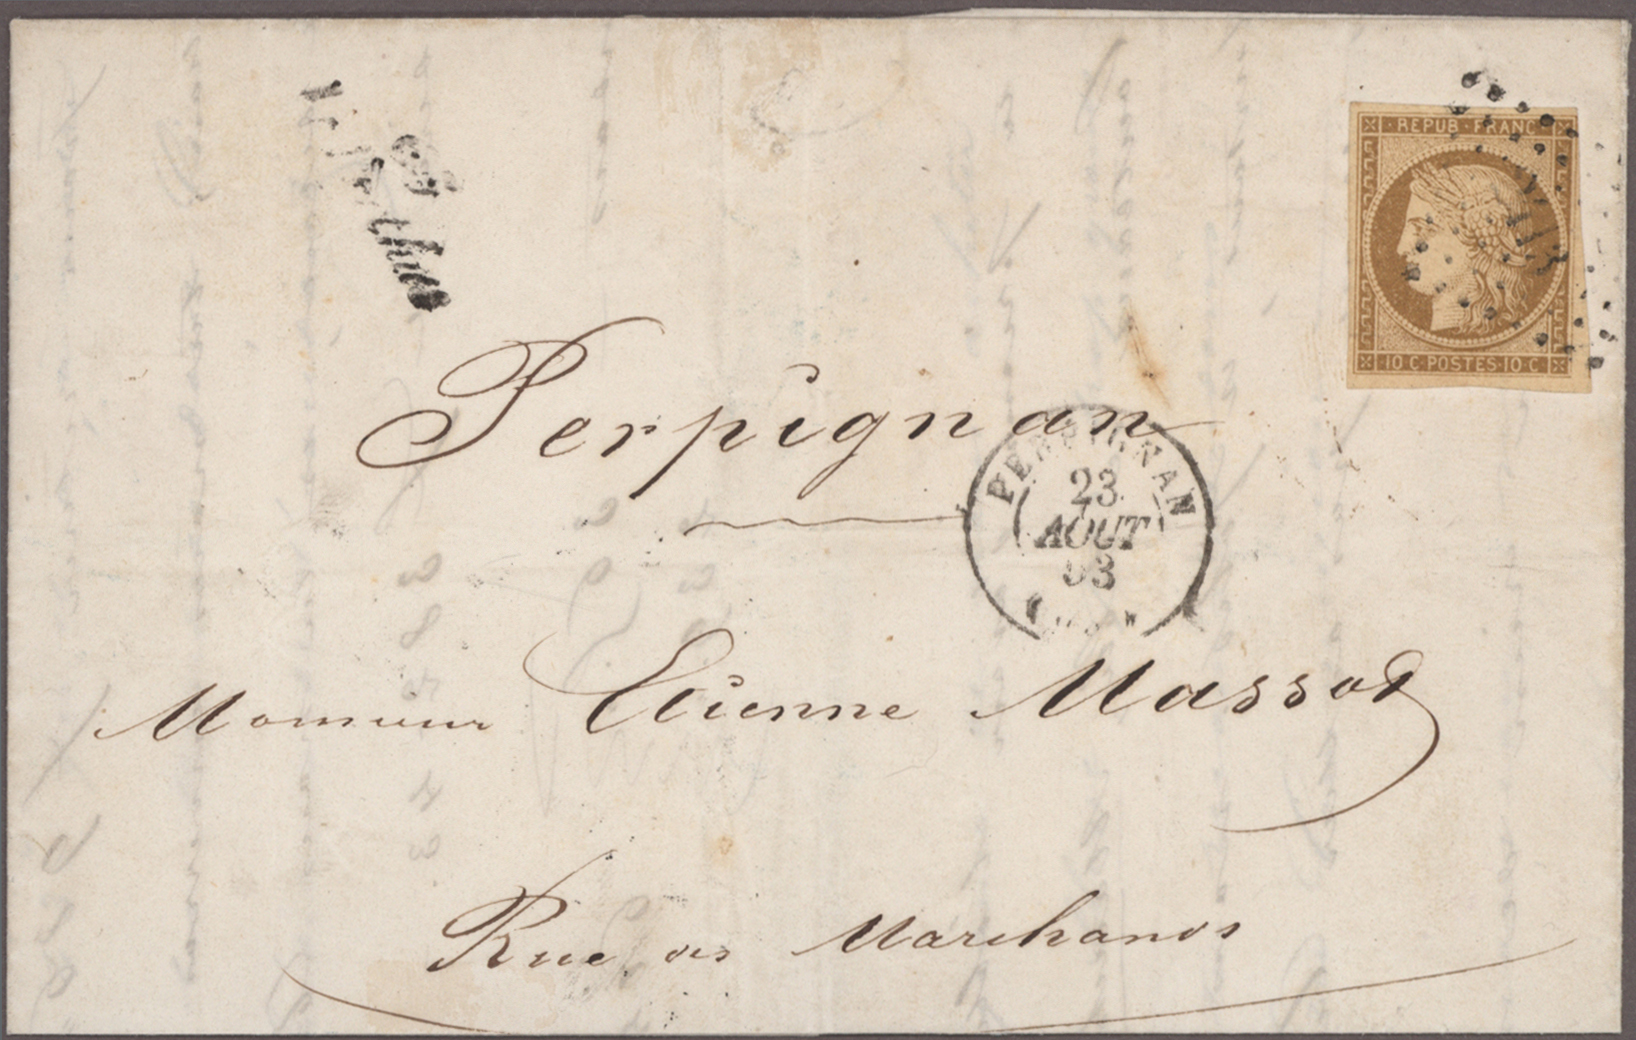 REPUB·FRANC
10 C·POSTES·10 C
Perpignan
PERPIGNAN
23
AOUT
53
Monsieur Etienne Massot
Rue des Marchands